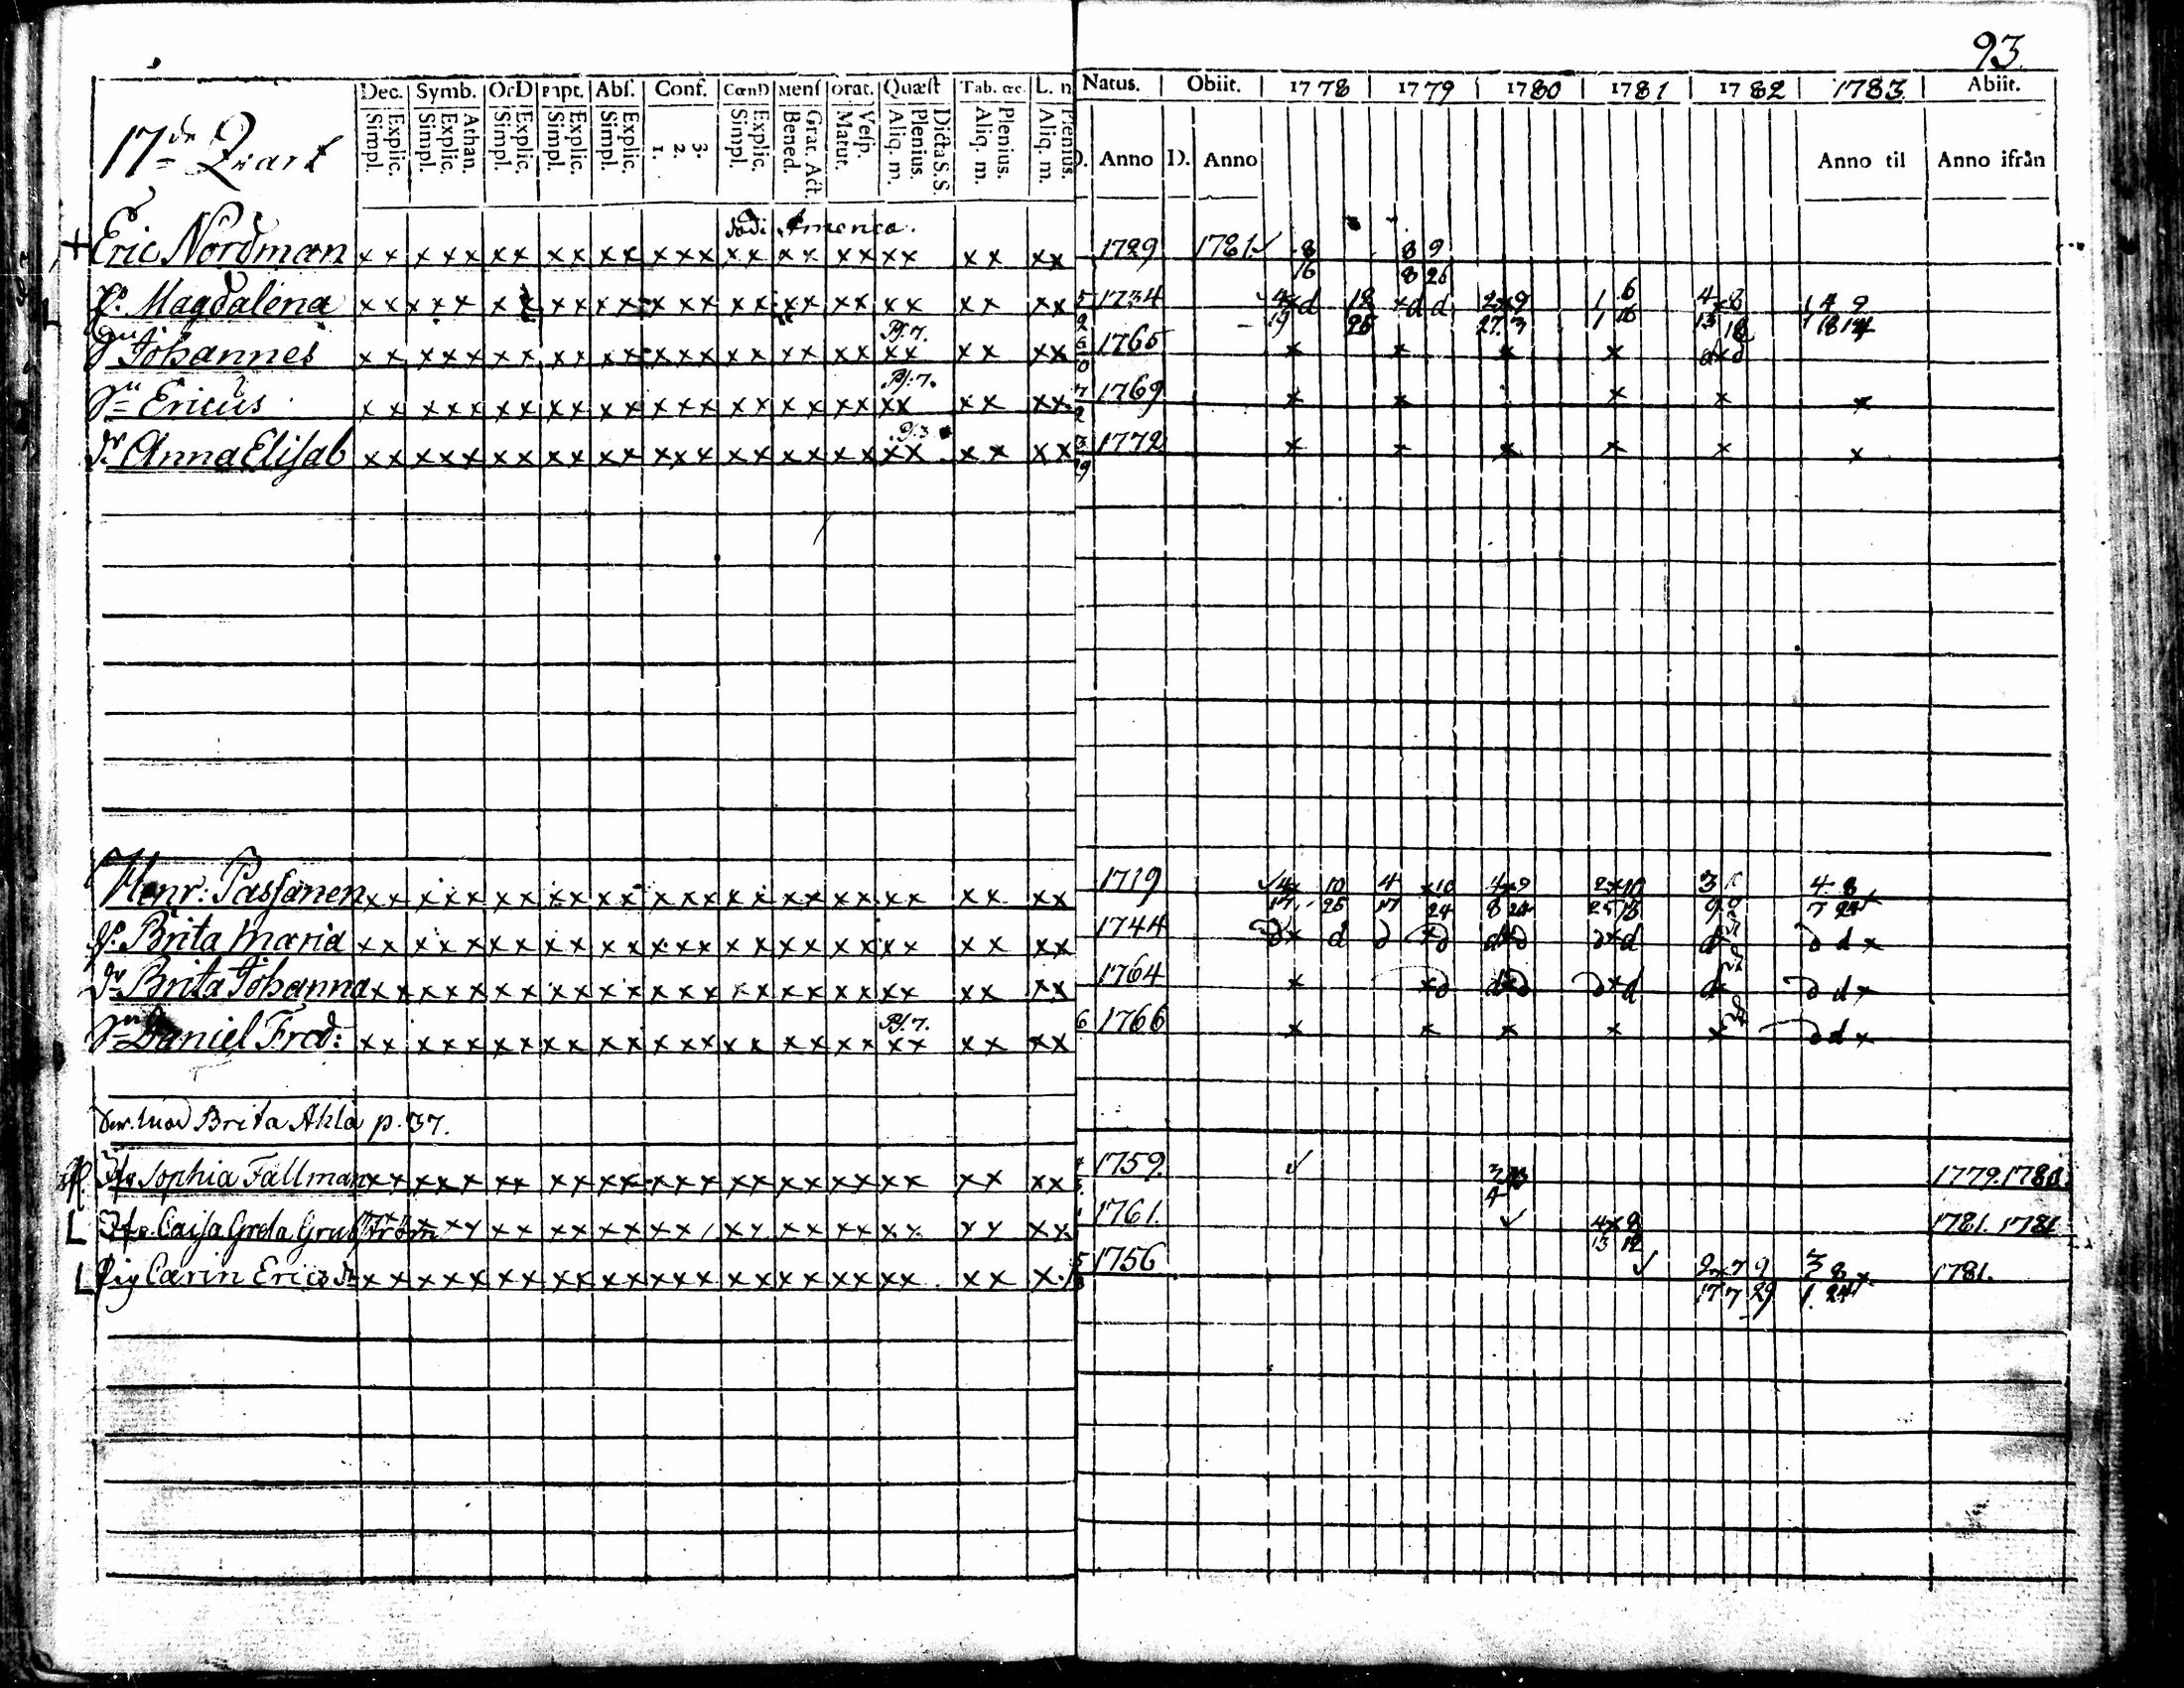 93.
Dec. Symb. Or D Bapt. Abs. Conf. Cœn D Mens Orat. Quæst Tab. œc. L. n Natus. Obiit. 1778 1779 1780 1781 1782 1783 Abiit.
Explic. Simpl. Athan. Explic. Simpl. Explic. Simpl. Explic. Simpl. Explic. Simpl. 3. 2. 1. Explic. Simpl. Grat. Act. Bened. Vesp. Matut. Dicta S. S. Plenius. Aliq. m. Plenius. Aliq. m. Plenius. Aliq. m. D. Anno D. Anno Anno til Anno ifrån
17de Qvart
död i America.
Eric Nordman x x x x x x x x x x x x x x x x x x x x x x x x x x x 1729 1781 8 8 9
16 8 26
H. Magdalena x x x x x x x x x x x x x x x x x x x x x x x x x x x 5 1734 4 x d 12 x d d 2 x 9 1 6 4 x 8 1 4 9
2 19 25 27 3 1 16 13 18 1 18 14
Ps. 7.
Sn Johannes x x x x x x x x x x x x x x x x x x x x x x x x x x x 6 1765 x x x x d x d
Ps. 7.
Sn Ericus x x x x x x x x x x x x x x x x x x x x x x x x x x x 7 1769 x x x x x
2
Ps. 3
Dr Anna Elisab x x x x x x x x x x x x x x x x x x x x x x x x x x x 3 1772 x x x x x x
29
Henr: Passanen x x x x x x x x x x x x x x x x x x x x x x x x x x x 1719 4 x 10 4 x 10 4 x 9 2 x 10 3 4 8
17 25 17 24 8 24 25 13 9 7 24
H. Brita Maria x x x x x x x x x x x x x x x x x x x x x x x x x x x 1744 d x d d x d d x d d x d d x d d x
Dr Brita Johanna x x x x x x x x x x x x x x x x x x x x x x x x x x x 1764 x x d d x d d x d d x d d x
Ps. 7.
Sn Daniel Fred: x x x x x x x x x x x x x x x x x x x x x x x x x x x 6 1766 x x x x x d d x
Brita Ahla p. 37.
Jfr Sophia Fallman x x x x x x x x x x x x x x x x x x x x x x x x x x x 1759. 3 1779. 1780.
4
L Jfr. Caisa Greta 1761. 4 x 9 1781. 1781
13 12
L Pig Carin Ericsdr x x x x x x x x x x x x x x x x x x x x x x x x x x 5 1756 2 x 7 9 3 8 x 1781.
17 7 29 1. 24